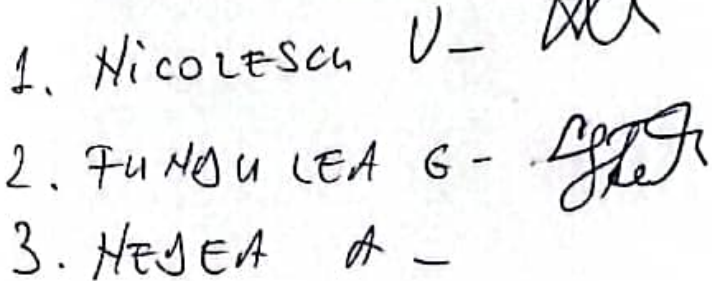 1. NICOLESCU V-
2. FUNDULEA G-
3. NEDEA A-